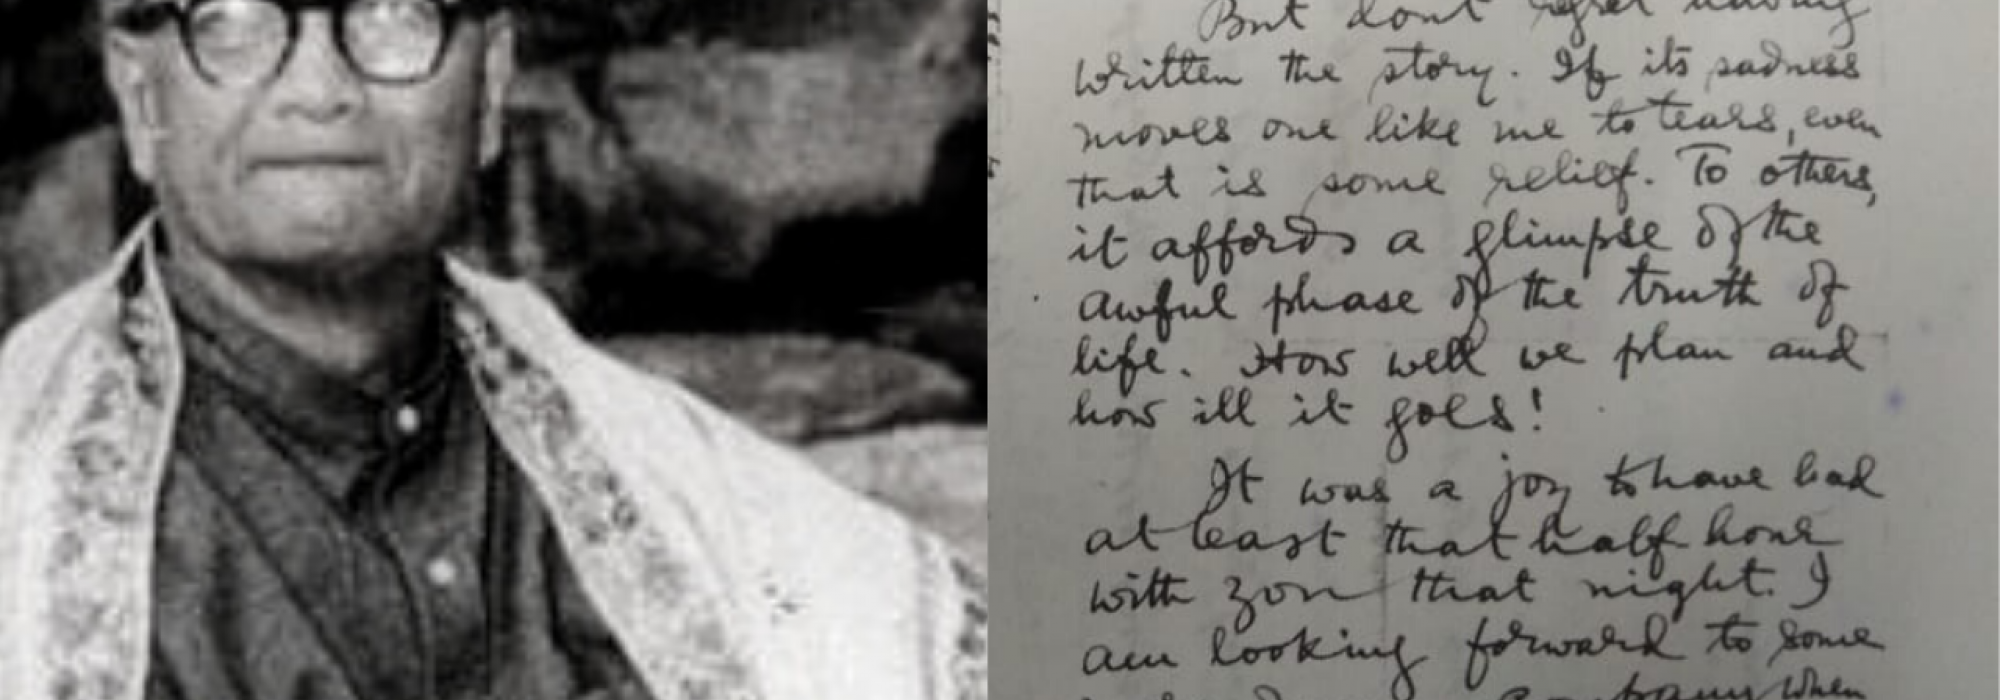 But dont regret having
written the story. If its sadness
moves one like me to tears, even
that is some relief. To others,
it affords a glimpse of the
awful phase of the truth of
life. How well we plan and
how ill it goes!
It was a joy to have had
at least that half hour
with you that night. I
am looking forward to some
when